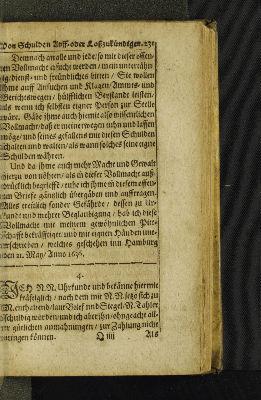 Von Schulden Auff- oder Loßzukündigen. 231
Demnach an alle und jede / so mit dieser offe-
nen Vollmacht ersucht werden / mein
dienst- und freundliches bitten / Sie wollen
Ihme auff Ansuchen und Klagen / Ampts- und
Gerichtswegen / hülfflichen Beystande leisten /
als wenn ich selbsten eigner Person zur Stelle
wäre. Gäbe ihme auch hiemit also wissentlichen
Vollmacht / daß er meinetwegen thun und lassen
möge / und seines gefallens mit diesen Schulden
schalten und walten / als wann solches seine eigne
Schulden währen.
Und da ihme auch mehr Macht und Gewalt
hierzu von nöhten / als in dieser Vollmacht auß-
drücklich begriffe / die ich ihme in diesem offe-
nen Briefe gäntzlich übergäben und aufftragen /
Alles treulich sonder Gefährde / dessen zu Ur-
kunde und mehrer Beglaubigung / hab ich diese
Vollmacht mit meinem gewöhnlichen Pit-
schafft bekräfftiget / und mit eignen Händen unt-
erschrieben / welches geschehen in Hamburg
den 21. May / Anno 1656.
4.
ICH N. N. Uhrkunde und bekänne hiermit
kräfftiglich / nach dem mir N. N. jetzo sich zu
N. enthaltend / laut Brief und Siegel / N. Thaler
schuldig worden / und ich aber ihn / ohngeacht all-
er gütlichen anmahnungen / zur Zahlung nicht
bringen können.
Q iiij Als